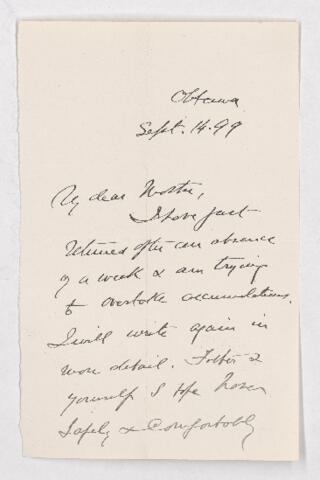 Ottawa
Sept. 14. 99
My dear
I have just
returned after an absence
of a week & am trying
to overtake accumulations.
I will write again in
more detail. &
yourself I hope
safely & Comfortably